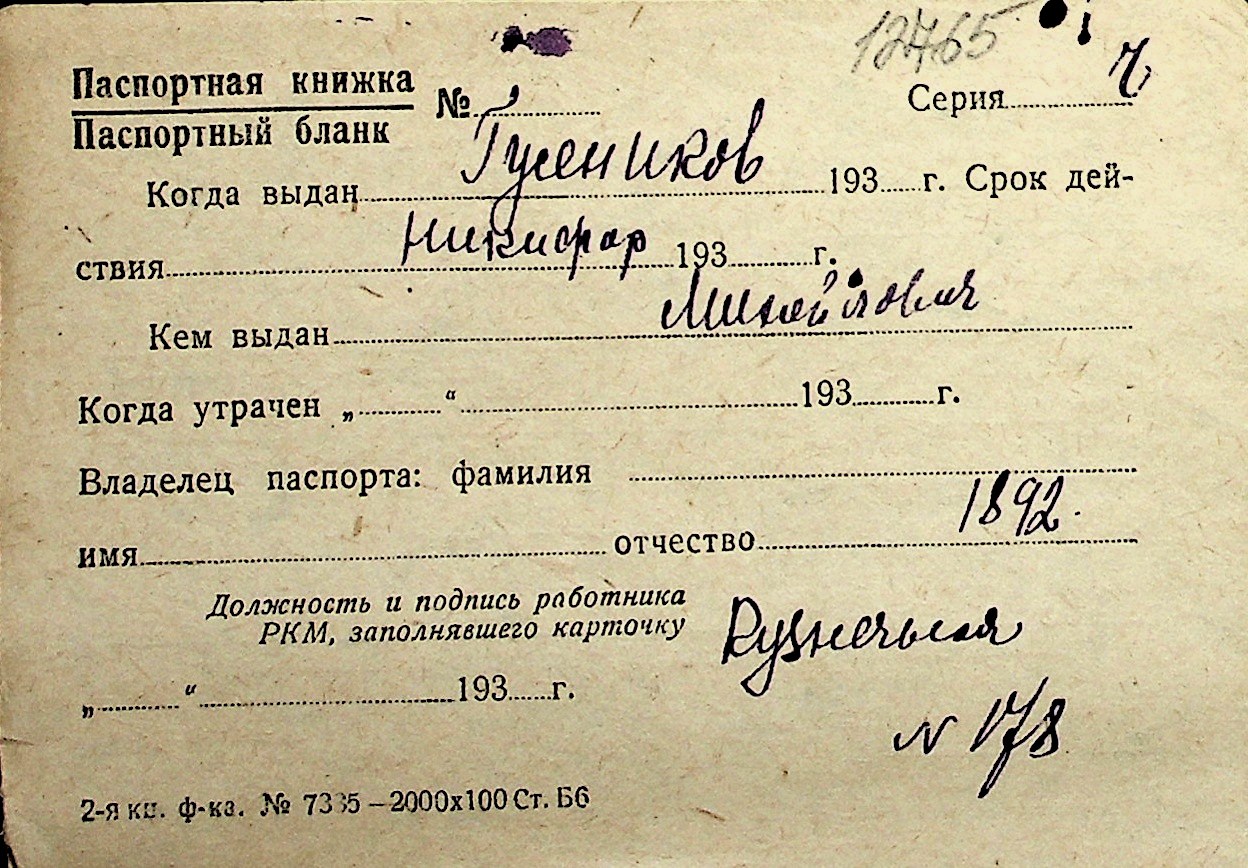 12465
Паспортная книжка
Паспортный бланк № Серия
Гусеников
Когда выдан 193 г. Срок дей-
Никифор
ствия 193 г.
Михайлович
Кем выдан
Когда утрачен „ “ 193 г.
Владелец паспорта: фамилия
1892.
имя отчество
Должность и подпись работника
РКМ, заполнявшего карточку
Кузнечная
N 178
„ “ 193 г.
2-я кн. ф-ка. № 7335 – 2000х100 Ст. Б6